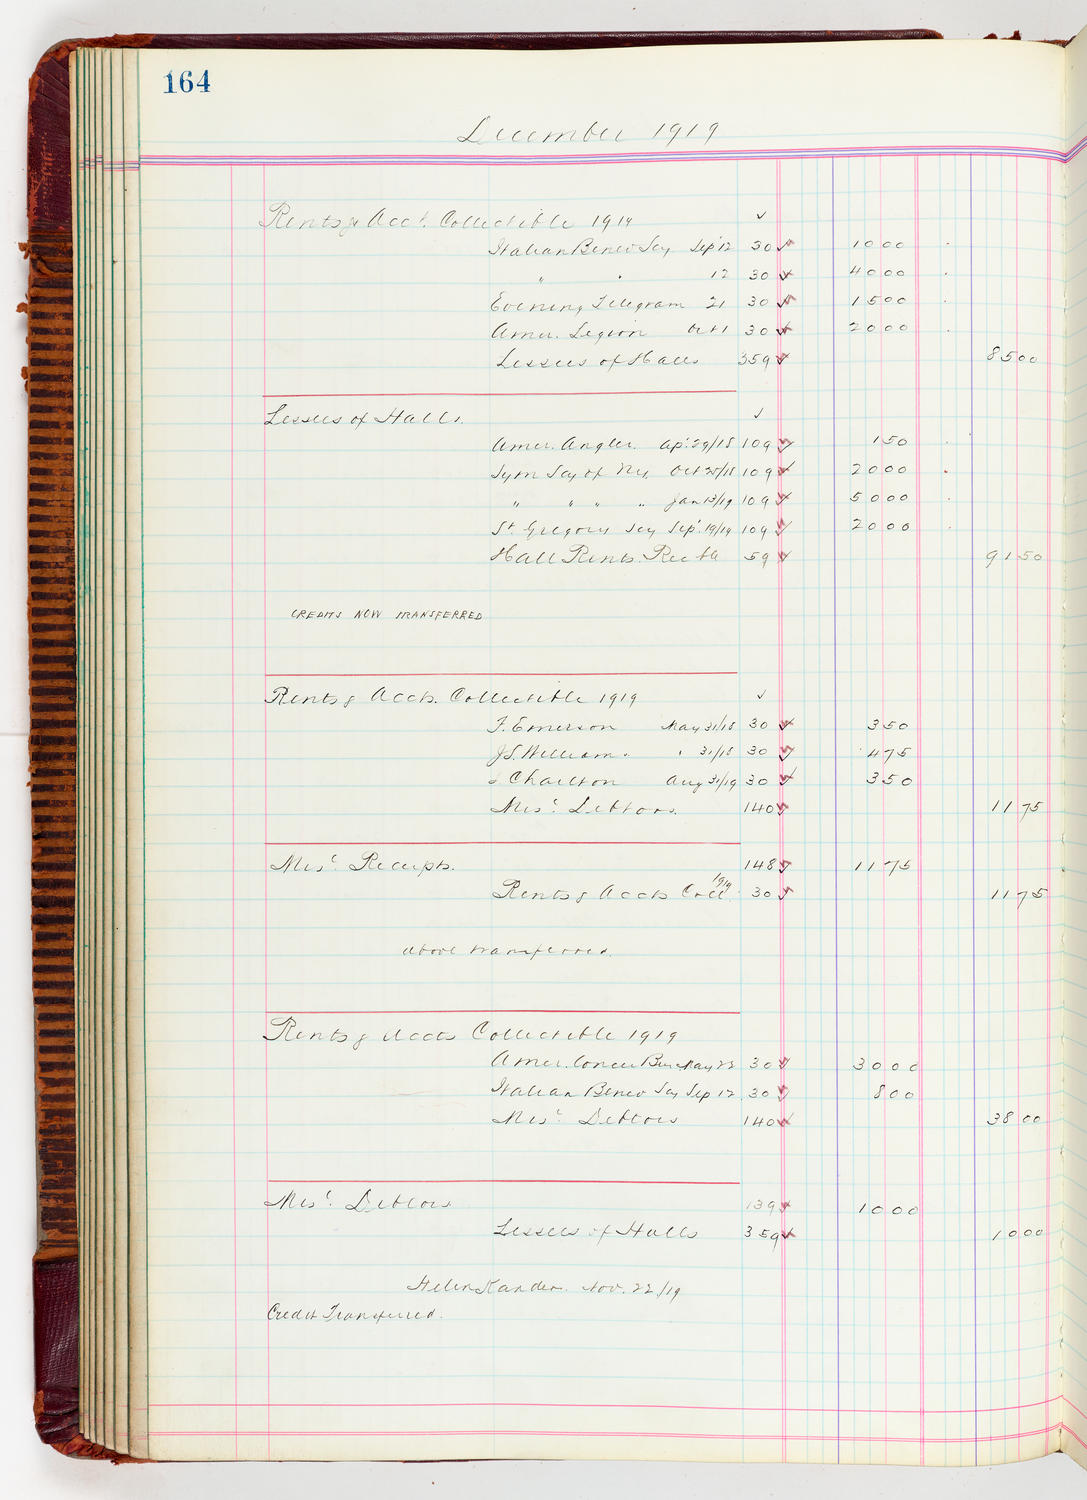 164
December 1919
Rents & Acct. Collectible 1919 ✓
Italian Benev Soy Sep 12 30 ✓ 10 00
" " 12 30 ✓ 40 00
Evening Telegram 21 30 ✓ 15 00
Amer. Legion Oct 1 30 ✓ 20 00
Lessees of Halls 359 ✓ 85 00
Lessees of Halls. ✓
Amer. Angler. Ap. 29/18 109 ✓ 1 50
Sym Soy of Ny. Oct 25/18 109 ✓ 20 00
" " " " Jan 13/19 109 ✓ 50 00
St. Gregory Soy Sep. 19/19 109 ✓ 20 00
Hall Rents. Rec 59 ✓ 91 50
CREDITS NOW TRANSFERRED
Rents & Accts. Collectible 1919 ✓
F. Emerson May 31/18 30 ✓ 3 50
J.S. William. " 31/18 30 ✓ 4 75
Charlton Aug 31/19 30 ✓ 3 50
Mis. Debtors. 140 ✓ 11 75
Mis. Receipts. 148 ✓ 11 75
Rents & Accts Coll. 1919 30 ✓ 11 75
above transferred.
Rents & Accts Collectible 1919
Amer. Concer Bu May 23 30 ✓ 30 00
Italian Benev Soy Sep 12 30 ✓ 8 00
Mis. Debtors 140 ✓ 38 00
Mis. Debtors 139 ✓ 10 00
Lessees of Halls 359 ✓ 10 00
Helen Kander. Nov. 22/19
Credit Transferred.